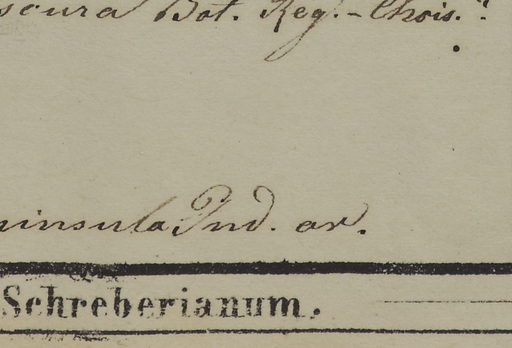 scura Bot. Reg. - Chois.
ninsula Ind. or.
Schreberianum.